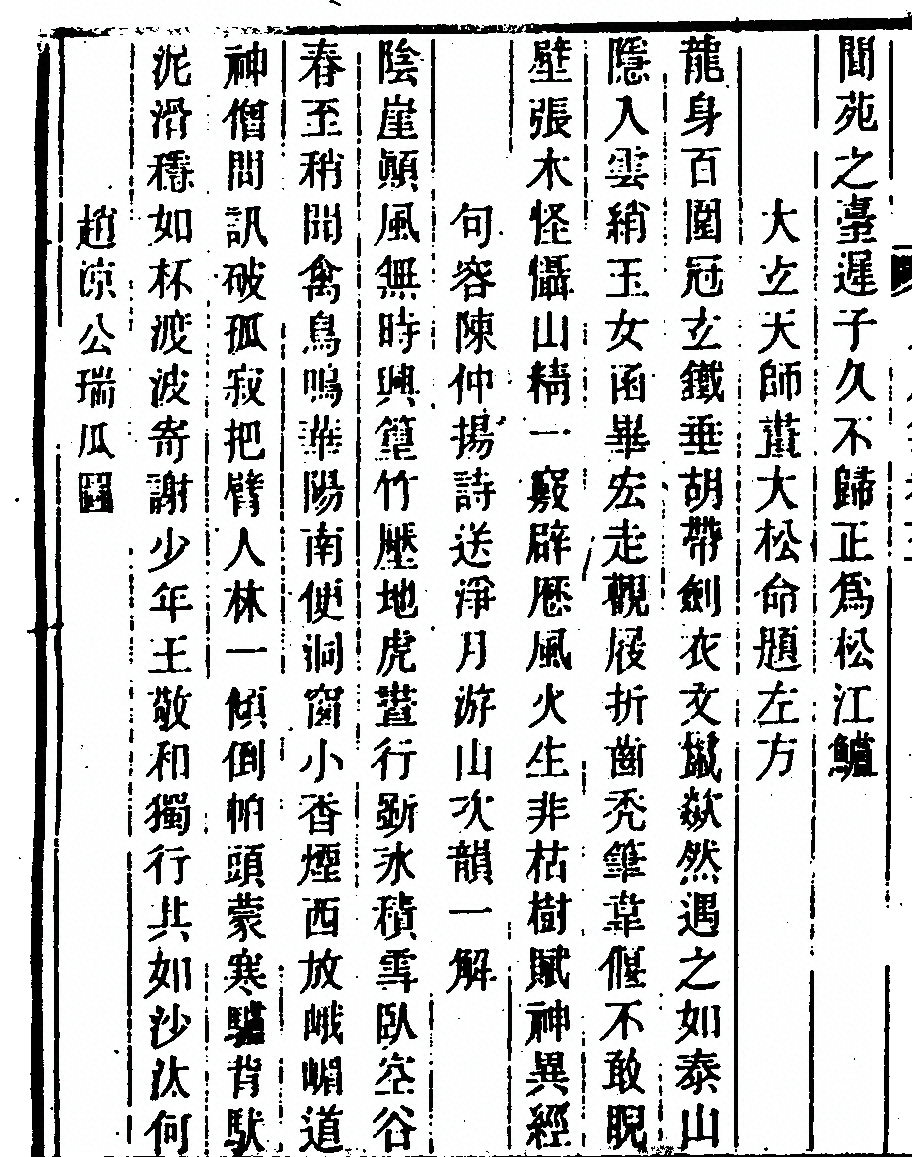 閬苑之臺遲子久不歸正爲松江鱸
大立天師畫大松命題左方
龍身百圍冠玄鐵垂胡帶劍衣文黻歘然遇之如泰山
隱入雲綃玉女函畢宏走觀屐折齒禿筆韋偃不敢睨
壁張木怪懾山精一竅辟歷風火生非枯樹賦神異經
句容陳仲揚詩送淨月游山次韻一解
陰崖顛風無時興篁竹壓地虎晝行斲冰積雪臥空谷
春至稍聞禽鳥鳴華陽南便洞窗小香煙西放峨嵋道
神僧問訊破孤寂把臂人林一傾倒帕頭蒙寒驢背馱
泥滑穩如杯渡波寄謝少年王敬和獨行其如沙汰何
趙涼公瑞瓜圖